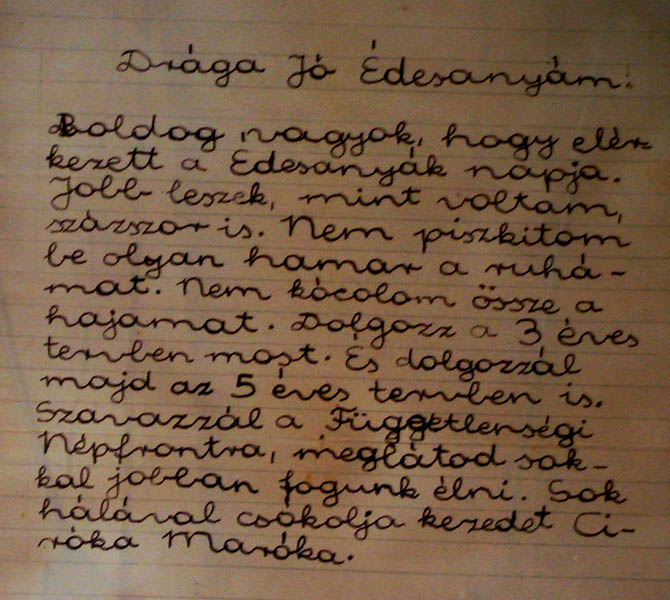 Drága Jó Édesanyám!
Boldog vagyok, hogy elér-
kezett a Édesanyák napja.
Jobb leszek, mint voltam,
százszor is. Nem piszkitom
be olyan hamar a ruhá-
mat. Nem kócolom össze a
hajamat. Dolgozz a 3 éves
tervben most. És dolgozzál
majd az 5 éves tervben is.
Szavazzál a Függetlenségi
Népfrontra, meglátod sok-
kal jobban fogunk élni. Sok
hálával csókolja kezedet Ci-
róka Maróka.